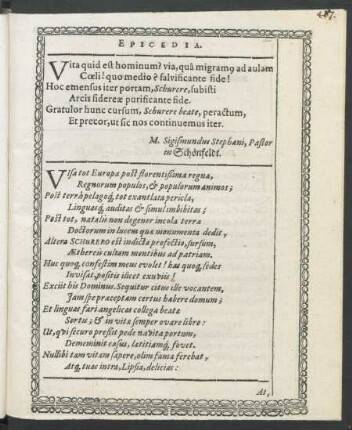 487.
EPICEDIA.
Vita quid est hominum? via, quâ migramꝰ ad aulam
Cœli! quo medio? salvificante fide!
Hoc emensus iter portam, Schurere, subisti
Arcis sidereæ purificante fide.
Gratulor hunc cursum, Schurere beate, peractum,
Et precor, ut sic nos continuemus iter.
M. Sigismundus Stephani, Pastor
in Schönfeldt.
Visa tot Europa post florentissima regna,
Regnorum populos, & populorum animos;
Post terrâ pelagoq́; tot exantlata pericla,
Linguasq́; auditas & simul imbibitas;
Post tot, natalii non degener incola terræ
Doctorum in lucem quæ monumenta dedit,
Altera SCHURERO est indicta profectio, sursum,
Æthereis cultam mentibus ad patriam.
Huc quoq́; confestim meus evolet! has quoq́; sedes
Invisat, positis ilicet exuviis!
Exciit his Dominus. Sequitur citus ille vocantem,
Jam spe præceptam certus habere domum;
Et linguas fari angelicas collega beatæ
Sortis; & in vita semper ovare libro:
Ut, qui securo pressit pede navita portum,
Deminuit casus, lætitiamq́; fovet.
Nullibi tam vitam sapere, olim fama ferebat,
Atq́; tuas intra, Lipsia, delicias:
At,